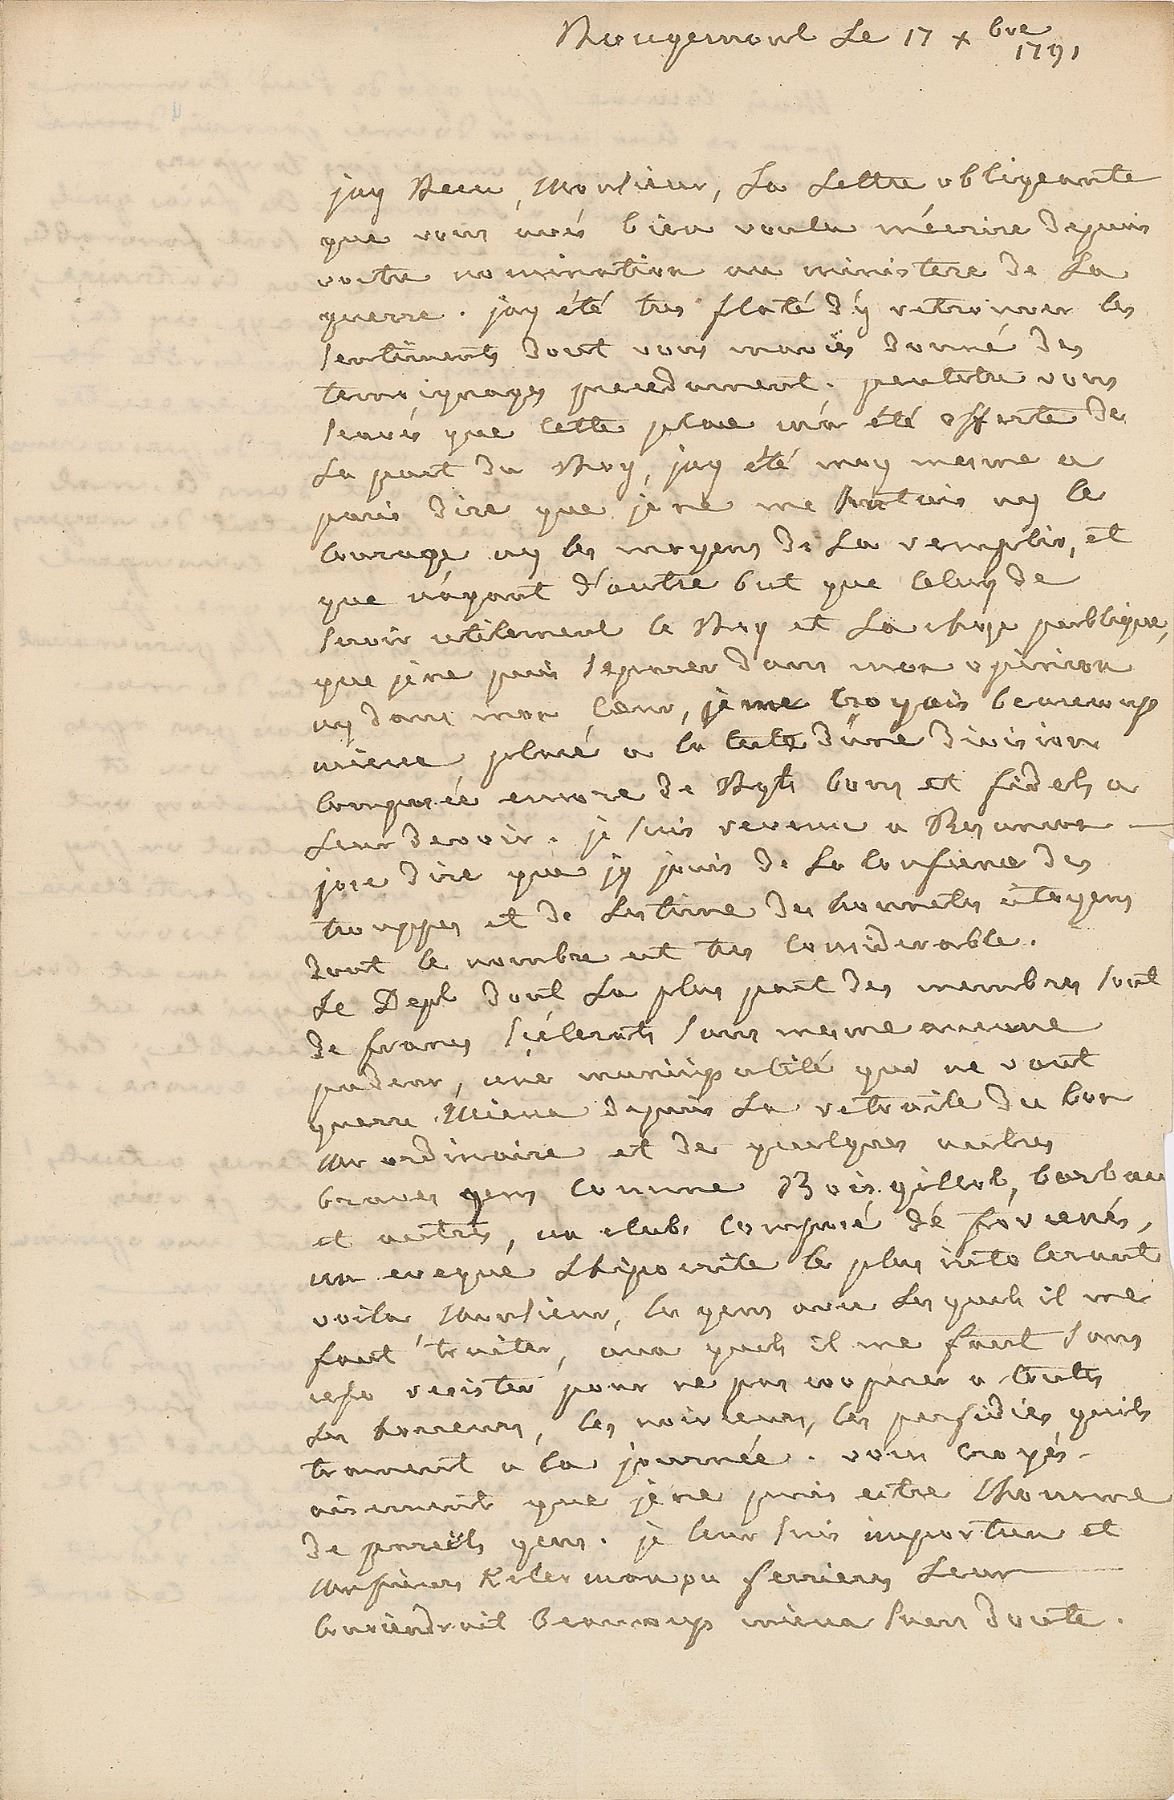 Rougemont Le 17 xbre
1791
jay Receu, Monsieur, La Lettre obligeante
que vous avés bien voulu mécrire depuis
vostre nomination au ministere de La
guerre. jay été tres flaté d'y retrouver les
sentiments dont vous maviés donné des
temoignages precedament. peutetre vous
scavés que cette place m'a été offerte de
La part du Roy, jay été moy mesme a
paris dire que je ne me sentois ny le
courage ny les moyens de La remplir, et
que n'ayant d'autre but que celuy de
servir utilement le Roy et La chose publique,
que je ne puis separer dans mon opinion
ny dans mon coeur, je me croyois beaucoup
mieux placé a la teste d'une division
composée encore de Rgts bons et fidels a
Leur devoir. je suis revenu a Besancon
jose dire que jy jouis de La confience des
trouppes et de Lestime des honnetes citoyens
dont le nombre est tres considerable.
Le Dept dont La plus part des membres sont
de francs scélerats sans mesme aucune
pudeur, une municipalité qui ne vaut
guere mieux depuis La retraite du bon
Mr ordinaire et de quelques autres
braves gens comme Bois gillot, barbau
et autres, un club composé dé forcenés,
un eveque Lhipocrite le plus intolerant
voila Monsieur, les gens avec Lesquels il me
faut traiter, aux quels il me faut sans
cesse resister pour ne pas cooperer a toutes
Les horreurs, les noirceurs, les perfidies quils
trament a la journée. vous croyés
aisement que je ne puis estre Lhomme
de pareils gens. je leur suis importun et
Messieurs Kelerman ou ferriers Leur
conviendroit beaucoup mieux sans doute.